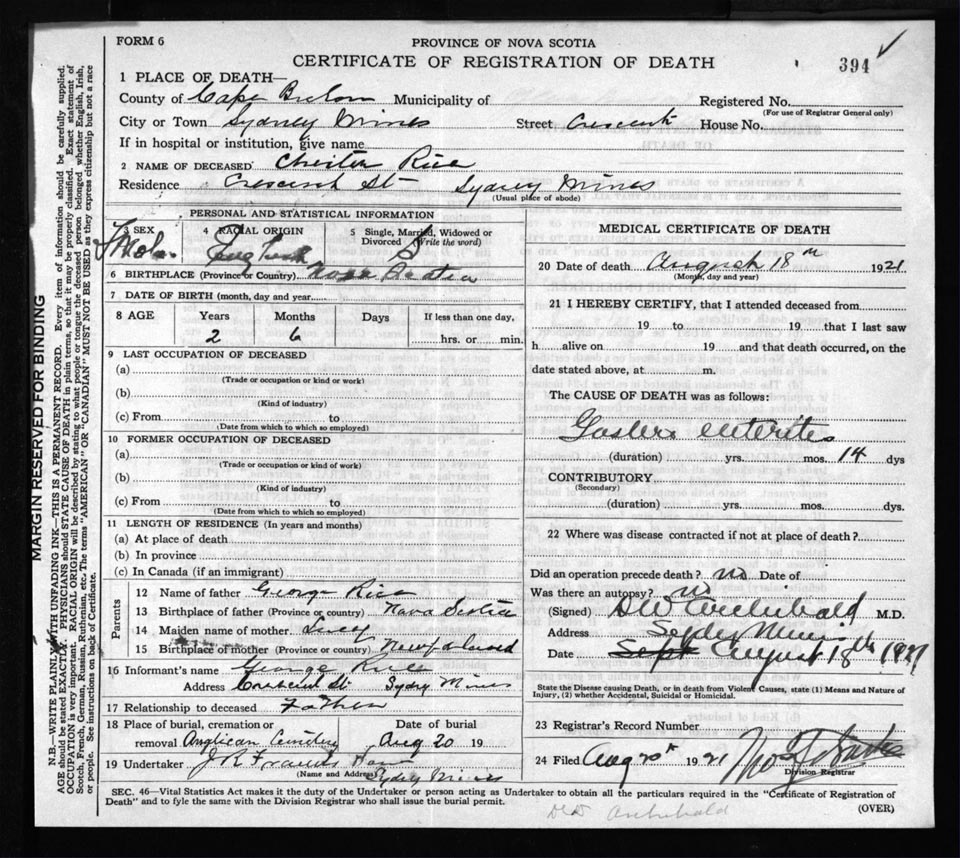 FORM 6
PROVINCE OF NOVA SCOTIA
CERTIFICATE OF REGISTRATION OF DEATH
394
1 PLACE OF DEATH—
County of Cape Breton Municipality of
Registered No.
(For use of Registrar General only)
City or Town Sydney Mines Street Crescent House No.
If in hospital or institution, give name
2 NAME OF DECEASED Chester Rice
Residence Crescent St Sydney Mines
(Usual place of abode)
PERSONAL AND STATISTICAL INFORMATION
3 SEX
4 RACIAL ORIGIN
5 Single, Married, Widowed or Divorced (Write the word)
Male
S
6 BIRTHPLACE (Province or Country) Nova Scotia
7 DATE OF BIRTH (month, day and year)
8 AGE Years Months Days If less than one day,
2 6 hrs. or min.
9 LAST OCCUPATION OF DECEASED
(a)
(Trade or occupation or kind or work)
(b)
(Kind of industry)
(c) From to
(Date from which to which so employed)
10 FORMER OCCUPATION OF DECEASED
(a)
(Trade or occupation or kind of work)
(b)
(Kind of industry)
(c) From to
(Date from which to which so employed)
11 LENGTH OF RESIDENCE (In years and months)
(a) At place of death
(b) In province
(c) In Canada (if an immigrant)
Parents
12 Name of father George Rice
13 Birthplace of father (Province or country) Nova Scotia
14 Maiden name of mother Lucy
15 Birthplace of mother (Province or country) Newfoland
16 Informant's name George Rice
Address Crescent St Sydney Mines
17 Relationship to deceased Father
18 Place of burial, cremation or removal Anglican Cemetery
Date of burial Aug 20 19
19 Undertaker J R Francis
(Name and Address) Sydney Mines
MEDICAL CERTIFICATE OF DEATH
20 Date of death August 18th 1921
(Month, day and year)
21 I HEREBY CERTIFY, that I attended deceased from
19 to 19 that I last saw
h alive on 19 and that death occurred, on the
date stated above, at m.
The CAUSE OF DEATH was as follows:
Gastero enterites
(duration) yrs. mos. 14 dys
CONTRIBUTORY
(Secondary)
(duration) yrs. mos. dys.
22 Where was disease contracted if not at place of death?
Did an operation precede death? no Date of
Was there an autopsy? no
(Signed) DW Archibald M.D.
Address Sydney Mines
Date Sept August 18th 1921
State the Disease causing Death, or in death from Violent Causes, state (1) Means and Nature of Injury, (2) whether Accidental, Suicidal or Homicidal.
23 Registrar's Record Number
24 Filed Aug 20th 1921
Division Registrar
SEC. 46—Vital Statistics Act makes it the duty of the Undertaker or person acting as Undertaker to obtain all the particulars required in the "Certificate of Registration of
Death" and to fyle the same with the Division Registrar who shall issue the burial permit.
(OVER)
DW Archibald
MARGIN RESERVED FOR BINDING
N.B.—WRITE PLAINLY WITH UNFADING INK—THIS IS A PERMANENT RECORD. Every item of information should be carefully supplied.
AGE should be stated EXACTLY. PHYSICIANS should STATE CAUSE OF DEATH in plain terms, so that it may be properly classified. Exact statement of
OCCUPATION is very important. RACIAL ORIGIN will be described by stating to what people or tongue the deceased person belonged whether English, Irish,
Scotch, French, German, Russian, Ruthenian, etc. The terms "AMERICAN" OR "CANADIAN" MUST NOT BE USED as they express citizenship but not a race
or people. See instructions on back of Certificate.